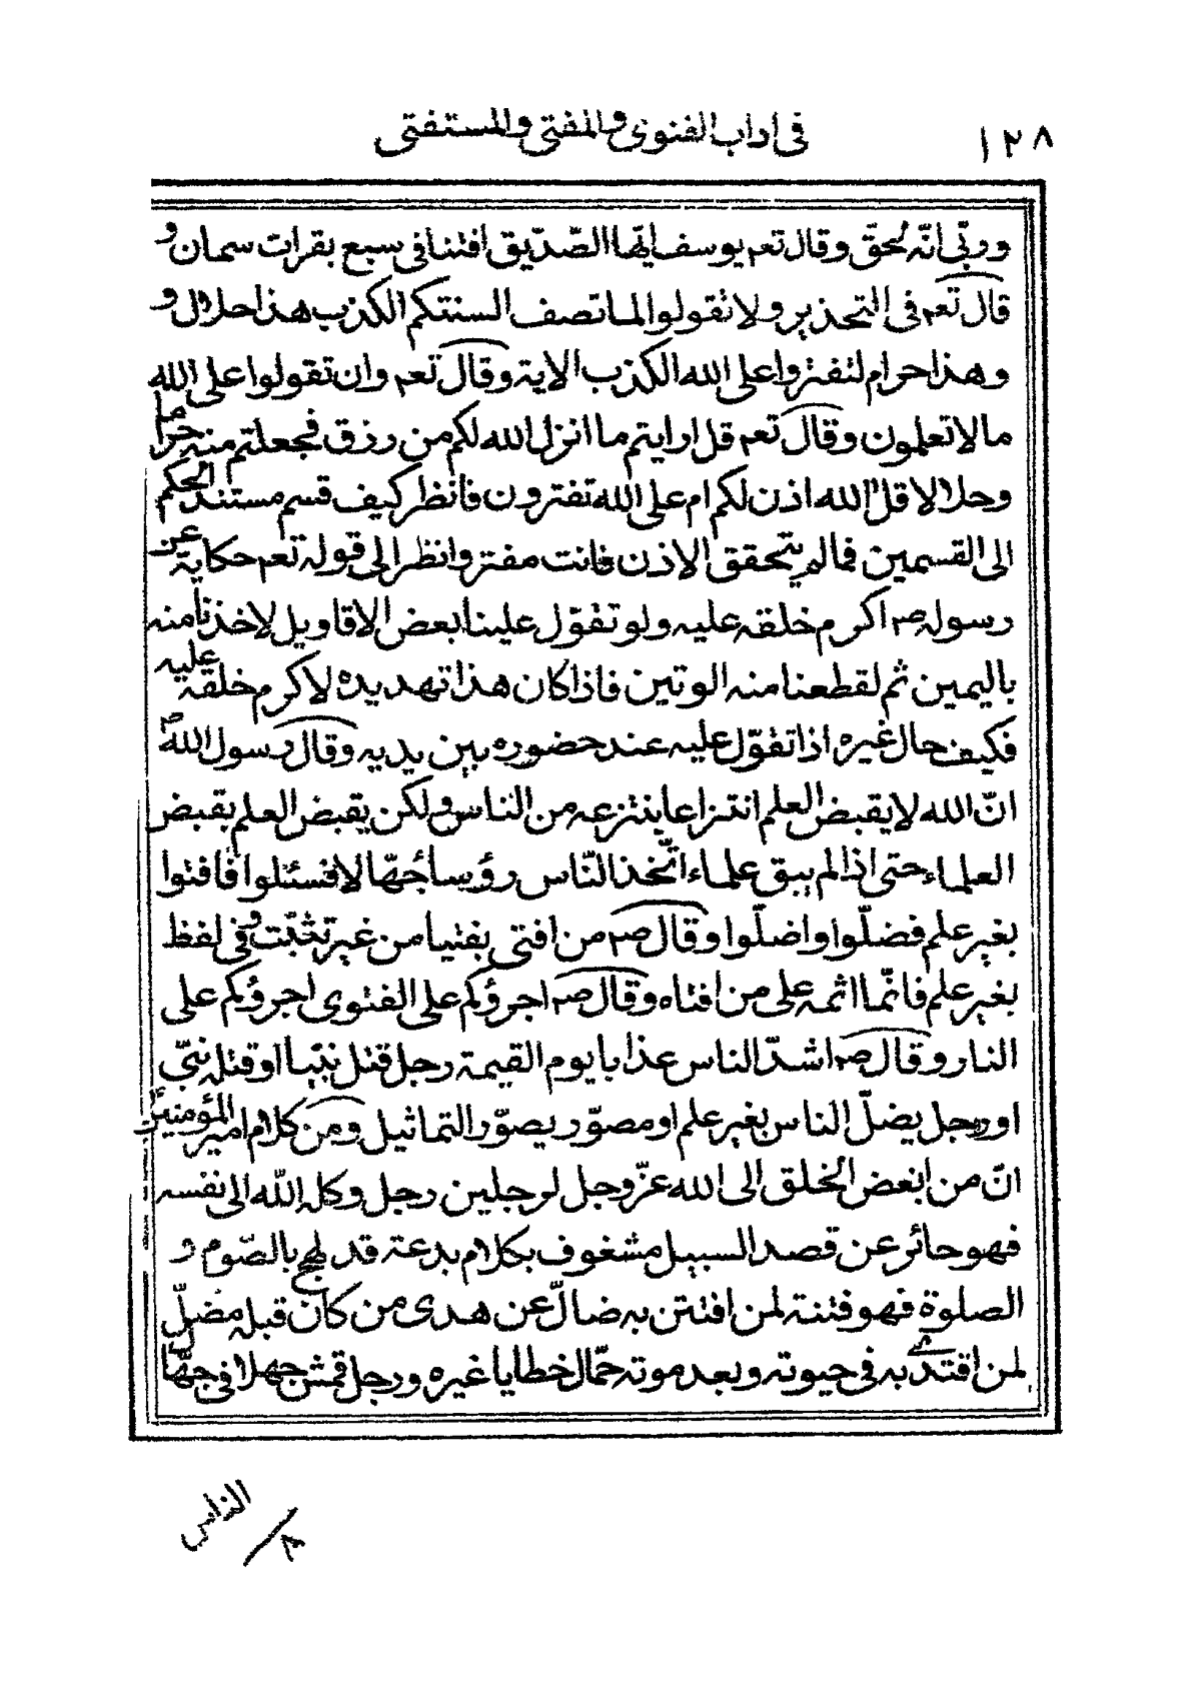 ١٢٨ في اداب الفتوى والمفتى والمستفتى
وربّى انّه لحقّ وقال تعم يوسف ايّها الصّدّيق افتنا فى سبع بقرات سمان و
قال تعم فى التحذير ولا تقولوا لما تصف السنتكم الكذب هذا حلال و
وهذا حرام لتفتروا على الله الكذب الاية وقال تعم وان تقولوا على الله
ما لا تعلمون وقال تعم قل ارايتم ما انزل الله لكم من رزق فجعلتم منه حراما
وحلالا قل الله اذن لكم ام على الله تفترون فانظر كيف قسم مستند الحكم
الى القسمين فمالم يتحقق الاذن فانت مفتر وانظر الى قوله تعم حكاية عن
رسوله صم اكرم خلقه عليه ولو تقوّل علينا بعض الاقاويل لاخذنا منه
باليمين ثم لقطعنا منه الوتين فاذا كان هذا تهديده لاكرم خلقه عليه
فكيف حال غيره اذا تقوّل عليه عند حضوره بين يديه وقال رسول الله ص
انّ الله لا يقبض العلم انتزاعا ينتزعه من الناس ولكن يقبض العلم بقبض
العلماء حتى اذا لم يبق علماء اتّخذ النّاس رؤسا جهّالا فسئلوا فافتوا
بغير علم فضلّوا واضلّوا وقال صم من افتى بفتيا من غير تثبّت وفى لفظ
بغير علم فانّما اثمه على من افتاه وقال صم اجرؤكم على الفتوى اجرؤكم على
النار وقال صم اشدّ الناس عذابا يوم القيمة رجل قتل نبيّا او قتله نبىّ
او رجل يضلّ الناس بغير علم او مصوّر يصوّر التماثيل ومن كلام امير المؤمنين
انّ من ابغض الخلق الى الله عزّ وجل لرجلين رجل وكله الله الى نفسه
فهو حائر عن قصد السبيل مشغوف بكلام بدعة قد لهج بالصّوم و
الصلوة فهو فتنة لمن افتتن به ضالّ عن هدى من كان قبله مضلّ
لمن اقتدى به فى حيوته وبعد موته حمّال خطايا غيره ورجل قمش جهلا فى جهّال
الناس